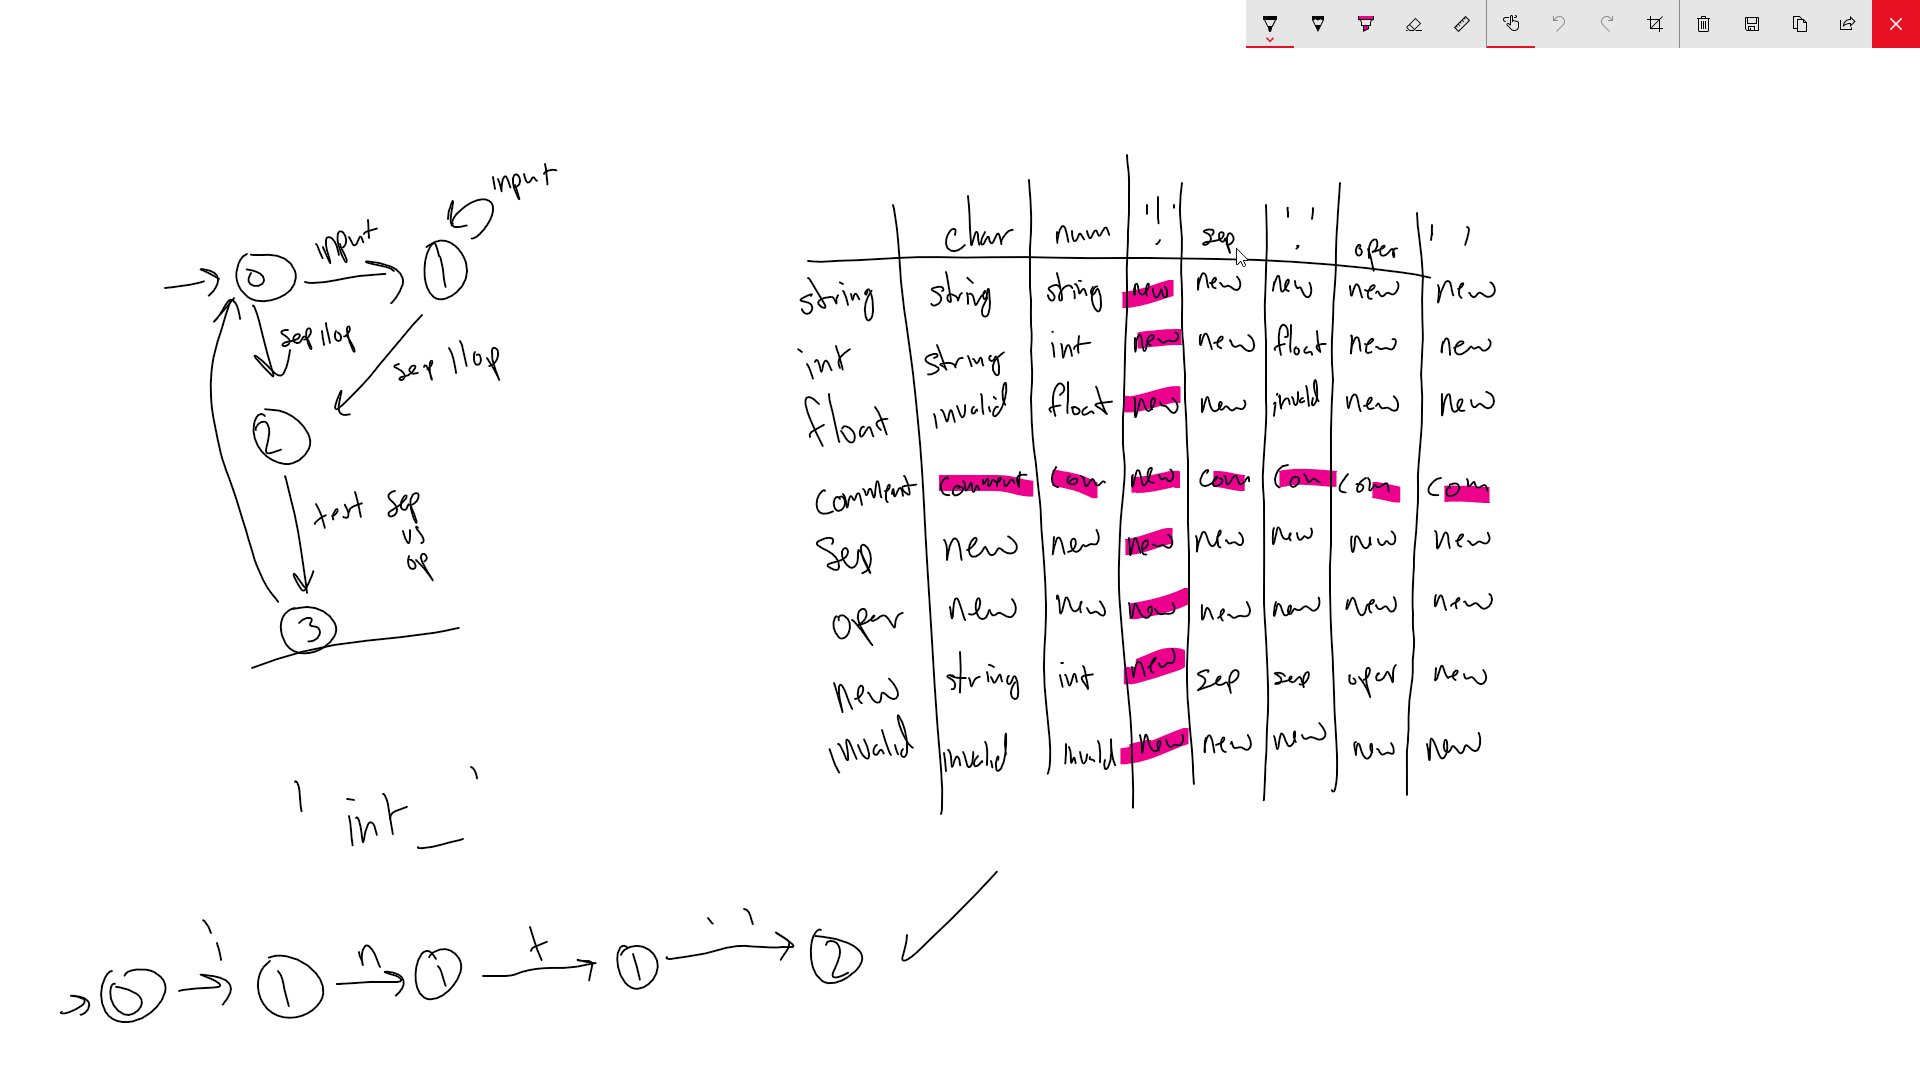 input
input
0
1
sep || op
sep || op
2
test sep
vs
op
3
' int_ '
i n t ' '
0 1 1 1 2
char num '!' sep '.' oper ' '
string string string new new new new new
int string int new new float new new
float invalid float new new invalid new new
comment comment com new com com com com
sep new new new new new new new
oper new new new new new new new
new string int new sep sep oper new
invalid invalid invalid new new new new new